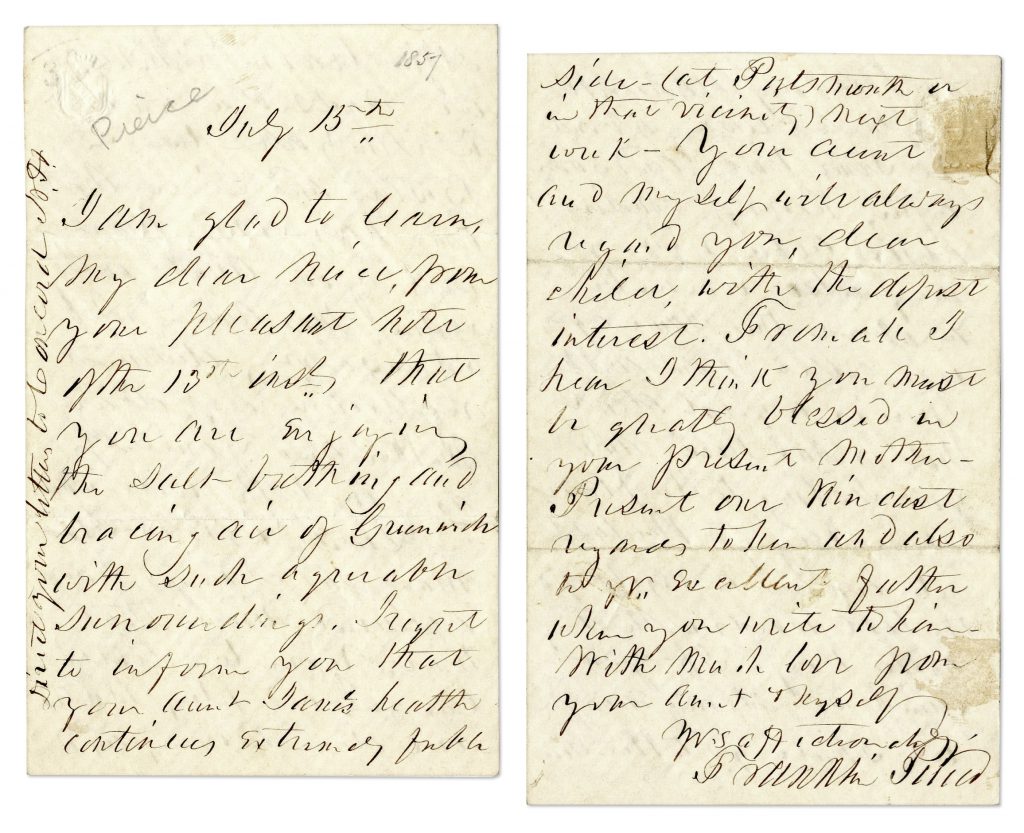 1857
Pierce
July 15th
I am glad to learn,
my dear niece, from
your pleasant note
of the 13th inst, that
you are enjoying
the salt bathing and
bracing air of Greenwich
with such agreeable
surroundings. I regret
to inform you that
your aunt Jane's health
continues extremely feeble
direct your letters to Concord N.H.
side - (at Portsmouth or
in that vicinity) next
week - Your aunt
and myself will always
regard you, dear
child, with the deepest
interest. From all I
hear I think you must
be greatly blessed in
your present mother -
Present our kindest
regards to her and also
to yr. excellent father
when you write to him -
With much love from
your aunt & myself
Yrs affectionately
Franklin Pierce